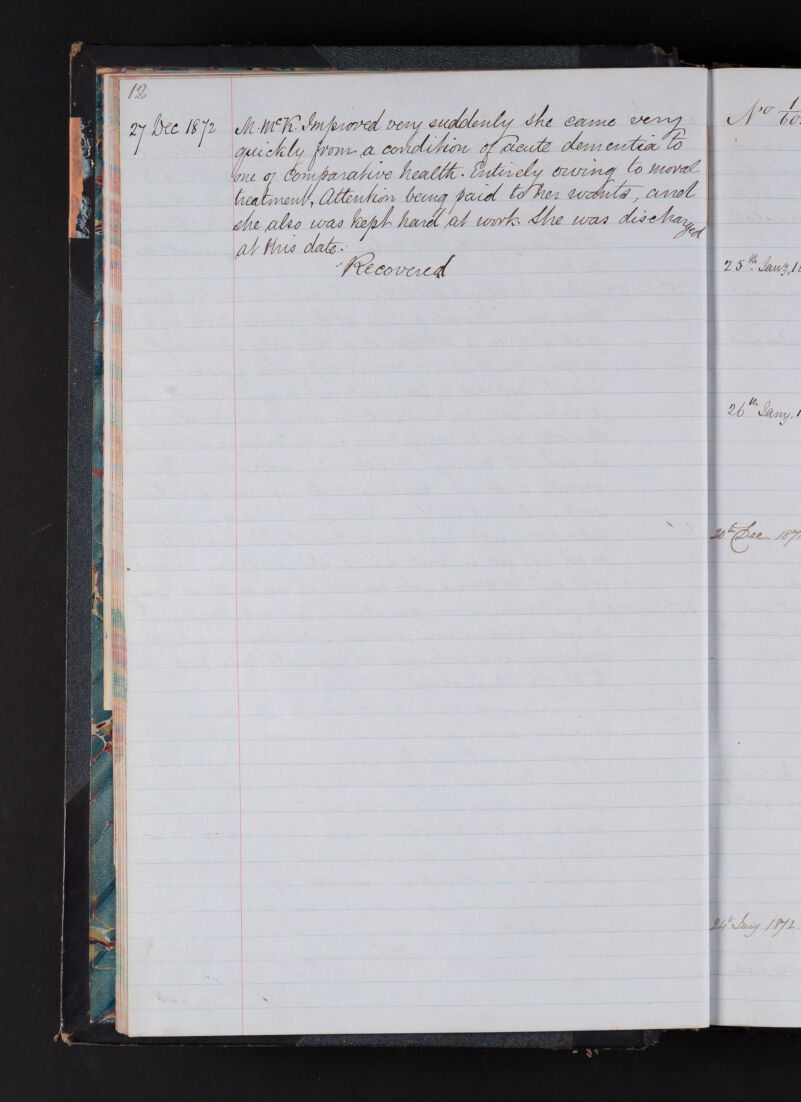 12
27 Dec 1872 M. McK. Improved very suddenly she came very
quickly from a condition of acute dementia to
one of Comparative health. Entirely owing to moral
treatment, Attention being paid to her wants, and
she also was kept hard at work. She was discharged
at this date.
Recovered
No
25th Jany, 1
26th Jany. 1
20th Dec. 187
24th Jany 1872